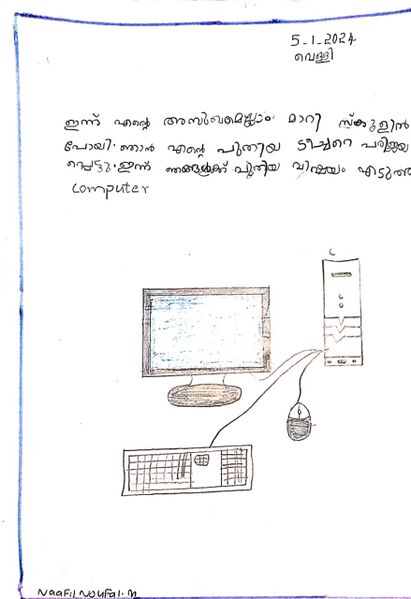 5-1-2024
വെള്ളി
ഇന്ന് എന്റെ അസുഖമെല്ലാം മാറി സ്കൂളിൽ
പോയി. ഞാൻ എന്റെ പുതിയ ടീച്ചറെ പരിജയ
പ്പെട്ടു. ഇന്ന് ഞങ്ങൾക്ക് പുതിയ വിഷയം എടുത്ത
computer
Naafil Noufal.m